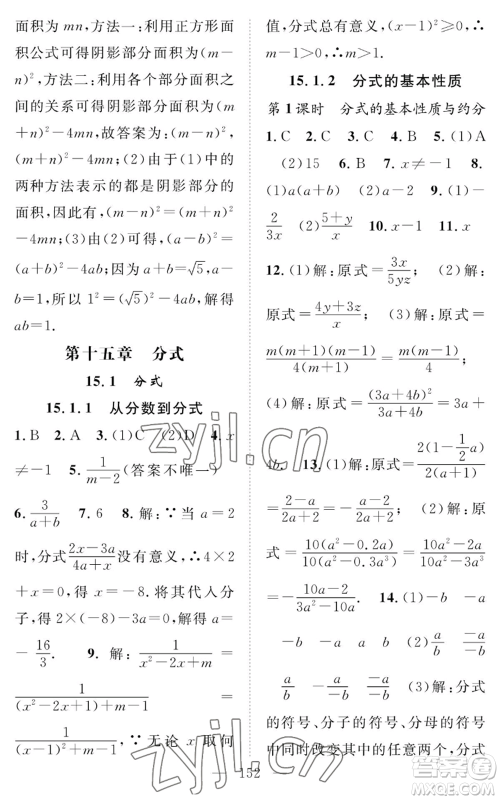 面积为 mn,方法一:利用正方形面
积公式可得阴影部分面积为(m
-n)²,方法二:利用各部分面积之
间的关系可得阴影部分面积为(m
+n)²-4mn,故答案为(m-n)²;(m
+n)²-4mn;(2)由于(1)中的
两种方法表示的都是阴影部分的
面积,因此有,(m-n)²=(m+
n)²-4mn;(3)由(2)可得,(a-b)²
=(a+b)²-4ab;因为a=√5,a-
b=1,所以 1²=(√5)²-4ab,解得
ab=1.
第十五章 分式
15.1 分式
15.1.1 从分数到分式
1.B 2.A 3.(1)C (2)D 4.x
≠-1 5.1/(m-2)(答案不唯一)
6.3/(a+b) 7.6 8.解:∵当a=2
时,分式(2x-3a)/(4a+x)没有意义,∴4×2
+x=0,得x=-8.将其代入分
子,得2×(-8)-3a=0,解得a=
-16/3. 9.解:1/(x²-2x+m)=
1/((x²-2x+1)+(m-1))=
1/((x-1)²+(m-1)),∵无论x取何
值,分式总有意义,(x-1)²≥0,∴
m-1>0,∴m>1.
15.1.2 分式的基本性质
第1课时 分式的基本性质与约分
1.C 2.C 3.A 4.C 5.(1)A
(2)15 6.B 7.x≠-1 8.
(1)a(a+b) (2)a 9.(1)-
2/3x (2)(5+y)/x 10.x-1 11.x
12.(1)解:原式=3x/5yz; (2)解:
原式=(4y+3z)/x; (3)解:原式=
(4)解:原式=(3a+4b)²/(3a+4b)=3a+
4b. 13.(1)解:原式=2(1-½a)/2(a+1)
=(2-a)/(2a+2)=-(a-2)/(2a+2); (2)解:原
式=10(a²-0.2a)/10(a-0.3a³)=(10a²-2a)/(10a-3a³)=
-(10a-2)/(3a²-10). 14.(1)-b -a
-b -b -a a b (2)a/b
a/b -a/b -a/b (3)解:分式
的符号、分子的符号、分母的符号
中同时改变其中的任意两个,分式
152
zyjl.cn